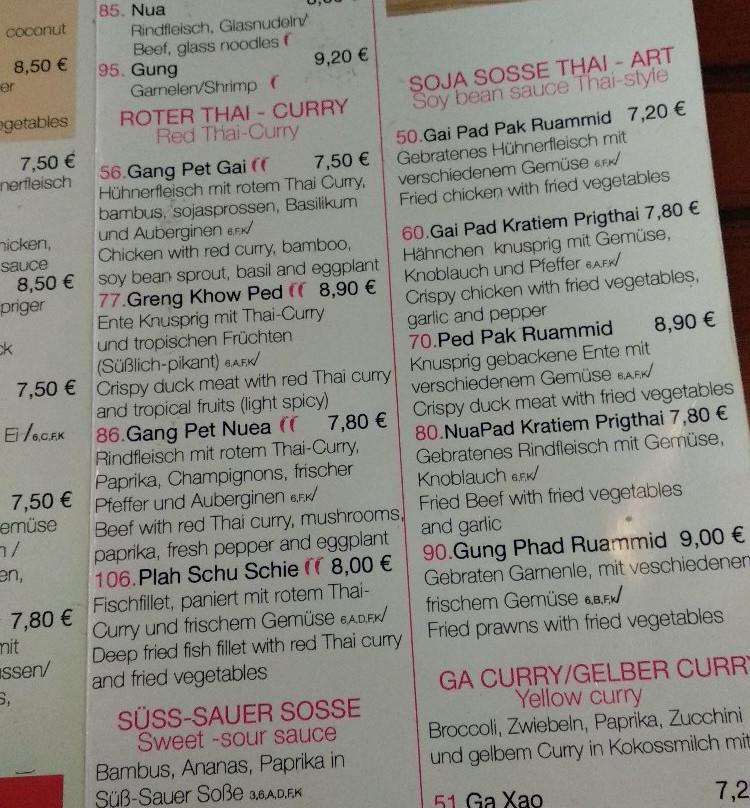 coconut
8,50 €
er
egetables
7,50 €
nerfleisch
hicken,
sauce
8,50 €
priger
ck
7,50 €
Ei /6,C,F,K
7,50 €
emüse
n /
en,
7,80 €
mit
ussen/
s,
85. Nua
Rindfleisch, Glasnudeln/
Beef, glass noodles
95. Gung 9,20 €
Garnelen/Shrimp
ROTER THAI - CURRY
Red Thai-Curry
56.Gang Pet Gai 7,50 €
Hühnerfleisch mit rotem Thai Curry,
bambus, sojasprossen, Basilikum
und Auberginen 6,F,K/
Chicken with red curry, bamboo,
soy bean sprout, basil and eggplant
77.Greng Khow Ped 8,90 €
Ente Knusprig mit Thai-Curry
und tropischen Früchten
(Süßlich-pikant) 6,A,F,K/
Crispy duck meat with red Thai curry
and tropical fruits (light spicy)
86.Gang Pet Nuea 7,80 €
Rindfleisch mit rotem Thai-Curry,
Paprika, Champignons, frischer
Pfeffer und Auberginen 6,F,K/
Beef with red Thai curry, mushrooms,
paprika, fresh pepper and eggplant
106.Plah Schu Schie 8,00 €
Fischfillet, paniert mit rotem Thai-
Curry und frischem Gemüse 6,A,D,F,K/
Deep fried fish fillet with red Thai curry
and fried vegetables
SÜSS-SAUER SOSSE
Sweet -sour sauce
Bambus, Ananas, Paprika in
Süß-Sauer Soße 3,6,A,D,F,K
SOJA SOSSE THAI - ART
Soy bean sauce Thai-style
50.Gai Pad Pak Ruammid 7,20 €
Gebratenes Hühnerfleisch mit
verschiedenem Gemüse 6,F,K/
Fried chicken with fried vegetables
60.Gai Pad Kratiem Prigthai 7,80 €
Hähnchen knusprig mit Gemüse,
Knoblauch und Pfeffer 6,A,F,K/
Crispy chicken with fried vegetables,
garlic and pepper
70.Ped Pak Ruammid 8,90 €
Knusprig gebackene Ente mit
verschiedenem Gemüse 6,A,F,K/
Crispy duck meat with fried vegetables
80.NuaPad Kratiem Prigthai 7,80 €
Gebratenes Rindfleisch mit Gemüse,
Knoblauch 6,F,K/
Fried Beef with fried vegetables
and garlic
90.Gung Phad Ruammid 9,00 €
Gebraten Garnenle, mit veschiedenen
frischem Gemüse 6,B,F,K/
Fried prawns with fried vegetables
GA CURRY/GELBER CURRY
Yellow curry
Broccoli, Zwiebeln, Paprika, Zucchini
und gelbem Curry in Kokossmilch mit
51 Ga Xao 7,2